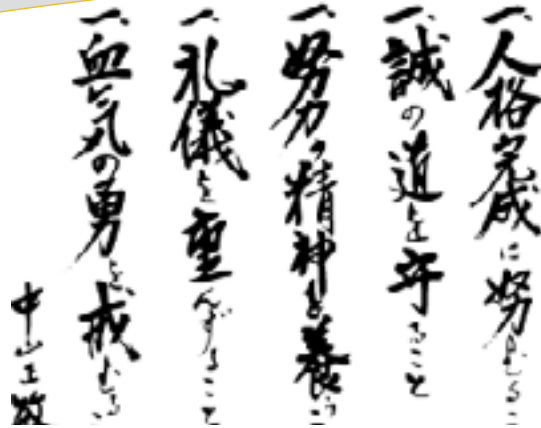 一、人格完成に努むるこ
一、誠の道を守ること
一、努力の精神を養うこ
一、礼儀を重んずること
一、血気の勇を戒むるこ
中山正敏